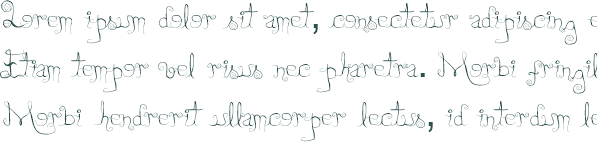 Lorem ipsum dolor sit amet, consectetur adipiscing e
Etiam tempor vel risus nec pharetra. Morbi fringil
Morbi hendrerit ullamcorper lectus, id interdum le